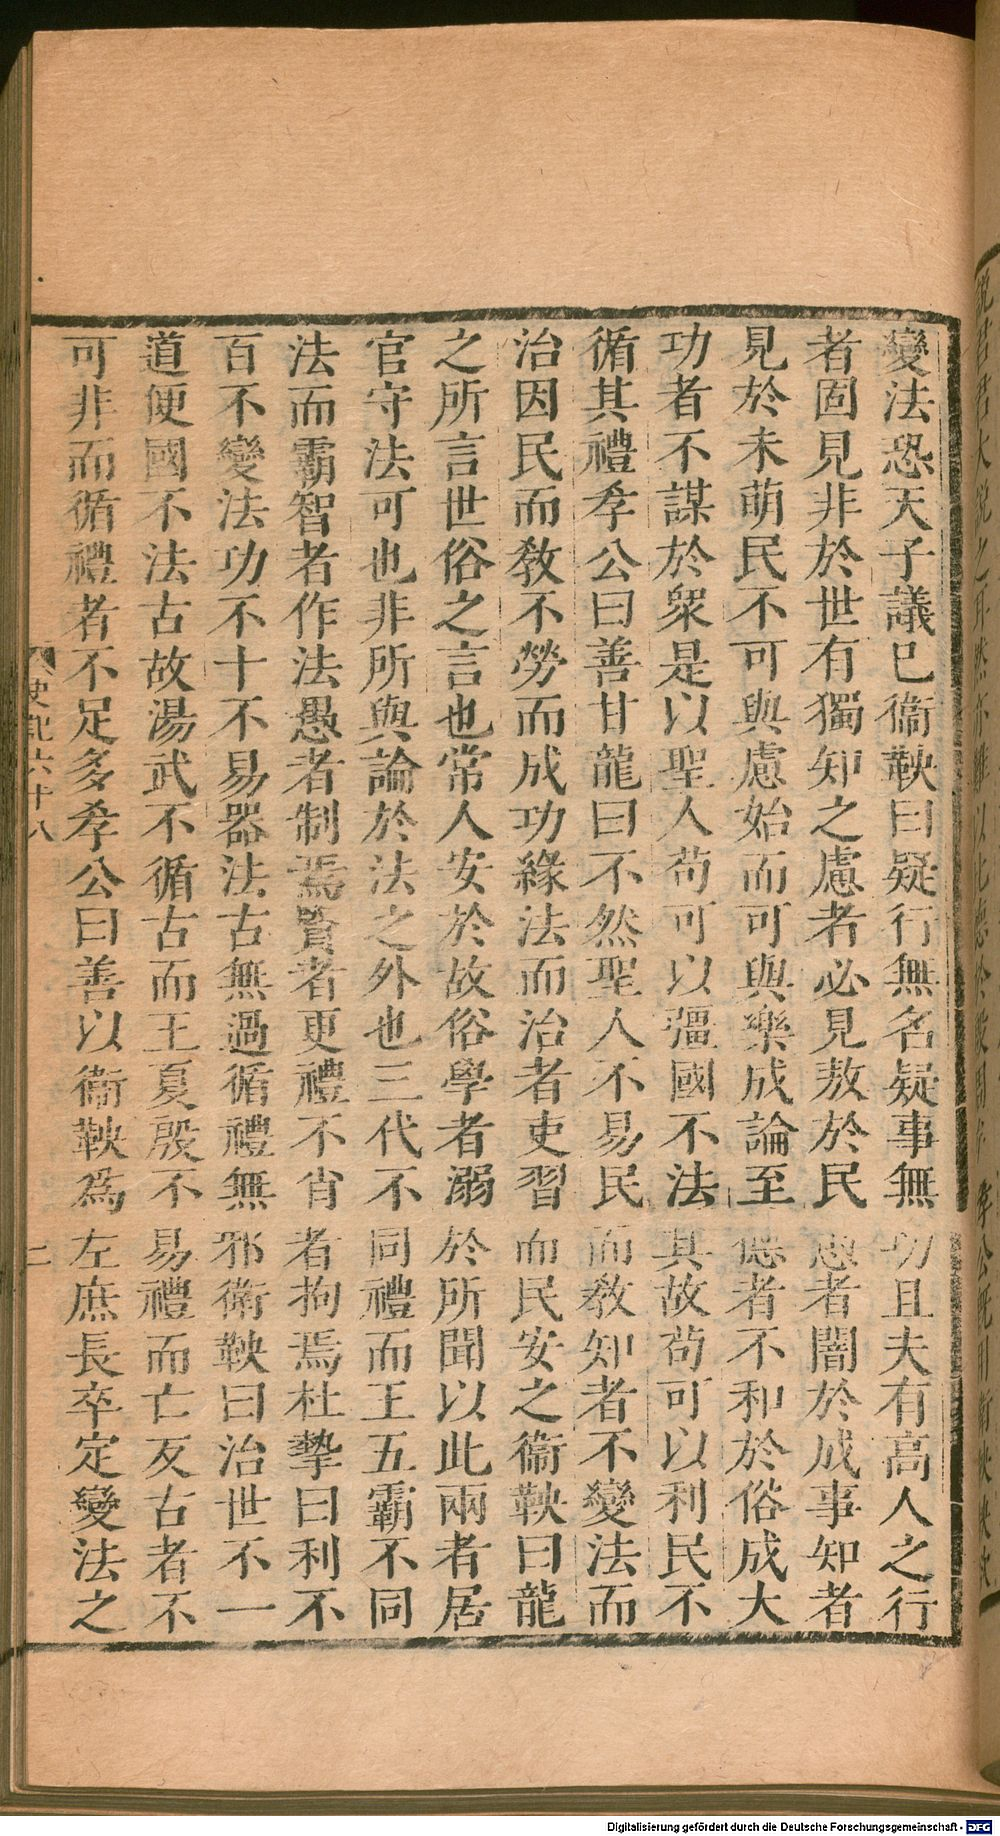 變法恐天子議已衞鞅曰疑行無名疑事無功且夫有高人之行
者固見非於世有獨知之慮者必見敖於民愚者闇於成事知者
見於未萌民不可與慮始而可與樂成論至德者不和於俗成大
功者不謀於衆是以聖人苟可以彊國不法其故苟可以利民不
循其禮孝公曰善甘龍曰不然聖人不易民而敎知者不變法而
治因民而敎不勞而成功緣法而治者吏習而民安之衞鞅曰龍
之所言世俗之言也常人安於故俗學者溺於所聞以此兩者居
官守法可也非所與論於法之外也三代不同禮而王五霸不同
法而霸智者作法愚者制焉賢者更禮不肖者拘焉杜摯曰利不
百不變法功不十不易器法古無過循禮無邪衞鞅曰治世不一
道便國不法古故湯武不循古而王夏殷不易禮而亡反古者不
可非而循禮者不足多孝公曰善以衞鞅爲左庶長卒定變法之
史記六十八
二
Digitalisierung gefördert durch die Deutsche Forschungsgemeinschaft - DFG